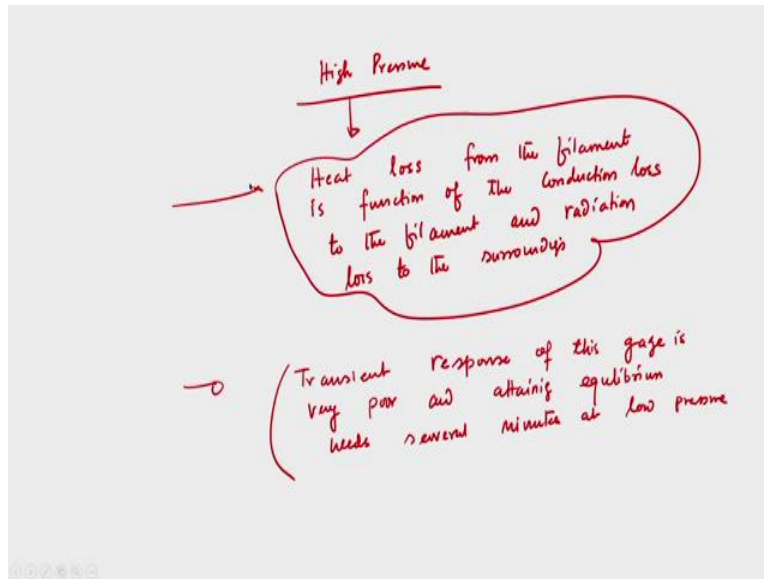 High Pressure
Heat loss from the filament
is function of the conduction loss
to the filament and radiation
loss to the surroundigs
Transient response of this gage is
very poor and attainig equlibrium
needs several minutes at low pressure